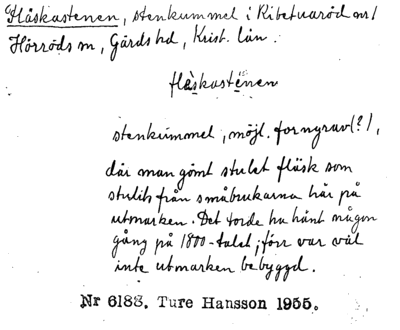 Flåskastenen, stenkummel i Ribetuaröd nr 1
Hörröds sn, Gärds hd, Krist. län.
flåskastenen
stenkummel, möjl. forngrav (?),
där man gömt stulet fläsk som
stulits från småbrukarna här på
utmarken. Det torde ha hänt någon
gång på 1800-talet; förr var väl
inte utmarken bebyggd.
Nr 6188. Ture Hansson 1955.